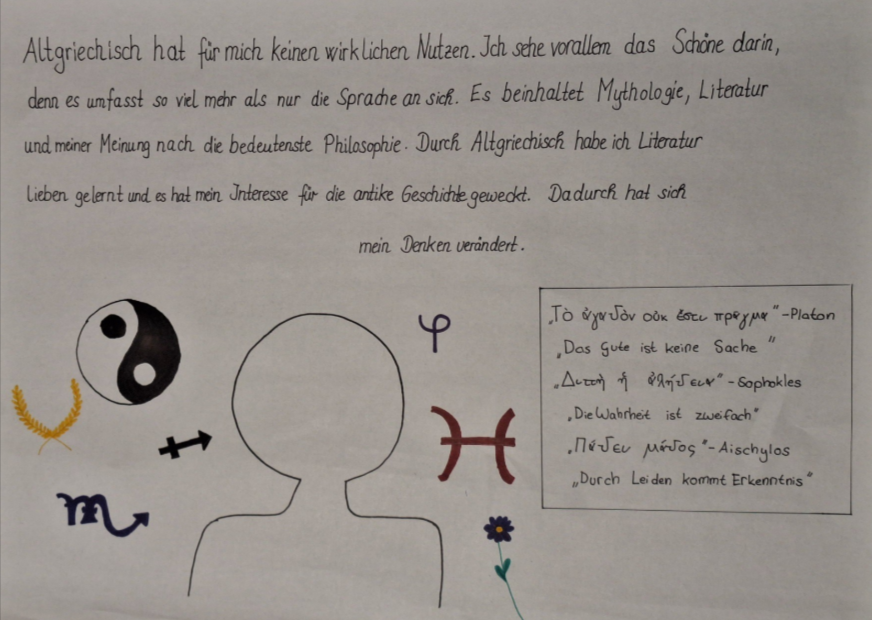 Altgriechisch hat für mich keinen wirklichen Nutzen. Ich sehe vorallem das Schöne darin,
denn es umfasst so viel mehr als nur die Sprache an sich. Es beinhaltet Mythologie, Literatur
und meiner Meinung nach die bedeutenste Philosophie. Durch Altgriechisch habe ich Literatur
lieben gelernt und es hat mein Interesse für die antike Geschichte geweckt. Dadurch hat sich
mein Denken verändert.
φ
„Τὸ ἀγαθὸν οὐκ ἔστι πρᾶγμα“ -Platon
„Das Gute ist keine Sache“
„Διττὴ ἡ ἀλήθεια“ - Sophokles
„Die Wahrheit ist zweifach“
„Πάθει μάθος“ - Aischylos
„Durch Leiden kommt Erkenntnis“